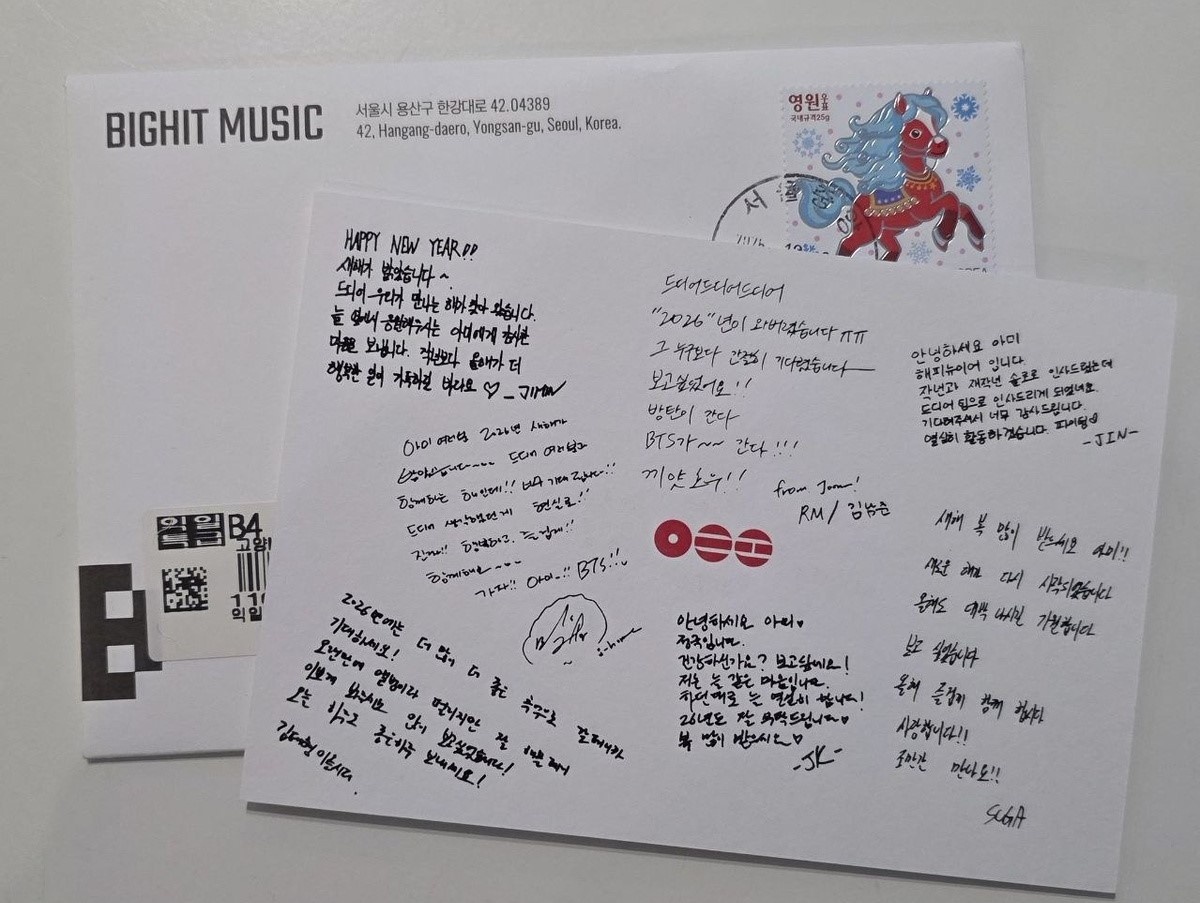 BIGHIT MUSIC
서울시 용산구 한강대로 42.04389
42, Hangang-daero, Yongsan-gu, Seoul, Korea.
영원우표
국내규격25g
서울
HAPPY NEW YEAR!!
새해가 밝았습니다~
드디어 우리가 만나는 해가 찾아 왔습니다.
늘 옆에서 응원해주시는 아미에게 감사한
마음을 보냅니다. 작년보다 올해가 더
행복한 일이 가득하길 바라요 ♡ _JIMIN
드디어드디어드디어
"2026"년이 와버렸습니다 ㅠㅠ
그 누구보다 간절히 기다렸습니다
보고싶었어요!!
방탄이 간다
BTS가~~ 간다!!!
끼얏호우!!
from Joon!
RM/ 김남준
안녕하세요 아미
해피뉴이어 입니다
작년과 재작년 솔로로 인사드렸는데
드디어 팀으로 인사드리게 되었네요.
기다려주셔서 너무 감사드립니다.
열심히 활동하겠습니다 파이팅
-JIN-
아미 여러분 2026년 새해가
밝았습니다~~~ 드디어 여러분과
함께하는 해인데!! 너무 기대됩니다!!
드디어 생각했던게 현실로!!
진짜!! 행복하고, 즐겁게!!
함께해요~~~
가자!! 아미~!! BTS!!
2026년에는 더 많이 더 좋은 추억으로
기대하세요!
오랜만에 앨범이라 떨리지만 잘
이쁘게 봐주시요 많이 보고싶었습니다!
오늘 하루고 좋은하루 보내세요!
김태형 이올시다.
안녕하세요 아미♥
정국입니다.
건강하신가요? 보고싶네요!
저는 늘 같은 마음입니다.
하던대로 늘 열심히 합니다!
26년도 잘 부탁드립니다♥
복 많이 받으시오♡
-JK-
새해 복 많이 받으세요 아미!!
새로운 해가 다시 시작되었습니다
올해도 대박 나시길 기원합니다
보고 싶었습니다
올해 즐겁게 함께 합시다
사랑합니다!!
조만간 만나요!!
SUGA
익일
B4
익일